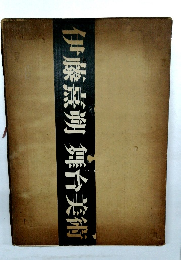 伊藤熹朔 舞台美術